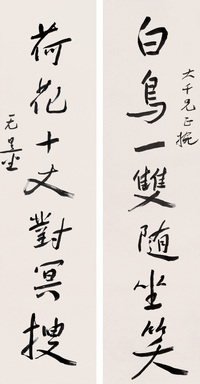 大千兄正掔
白鳥一雙随坐笑
荷花十丈對冥搜
无量